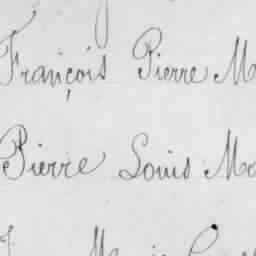 François Pierre M
Pierre Louis Mo